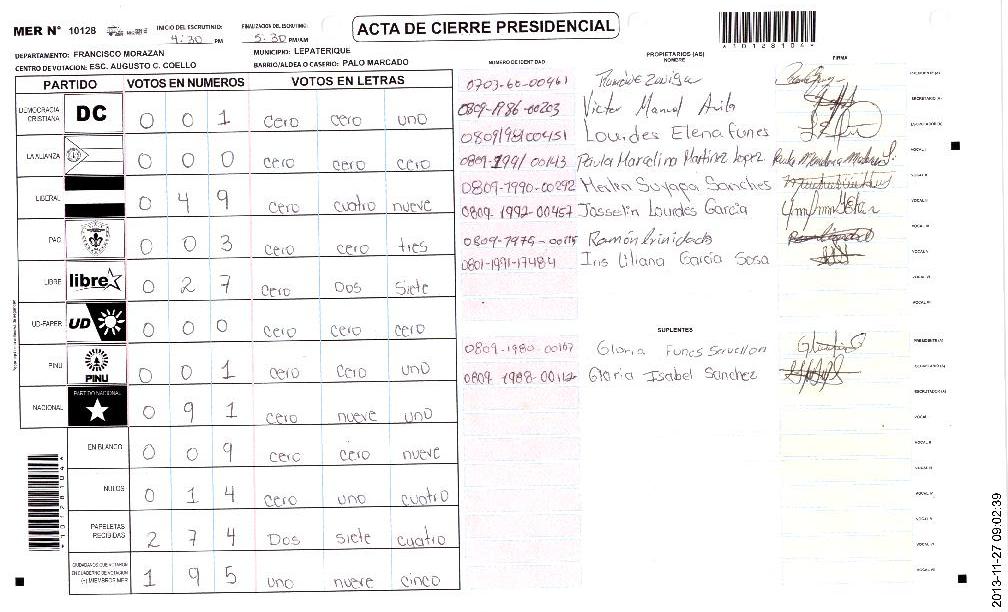 MER N° 10128
INICIO DEL ESCRUTINIO:
4:30 PM
FINALIZACION DEL ESCRUTINIO:
5:30 PM/AM
ACTA DE CIERRE PRESIDENCIAL
*10128104*
DEPARTAMENTO: FRANCISCO MORAZAN
MUNICIPIO: LEPATERIQUE
CENTRO DE VOTACION: ESC. AUGUSTO C. COELLO
BARRIO/ALDEA O CASERIO: PALO MARCADO
PARTIDO VOTOS EN NUMEROS VOTOS EN LETRAS
DEMOCRACIA CRISTIANA DC 0 0 1 cero cero uno
LA ALIANZA 0 0 0 cero cero cero
LIBERAL 0 4 9 cero cuatro nueve
PAC 0 0 3 cero cero tres
LIBRE libre 0 2 7 cero Dos Siete
UD-FAPER UD 0 0 0 cero cero cero
PINU PINU 0 0 1 cero cero uno
NACIONAL PARTIDO NACIONAL 0 9 1 cero nueve uno
EN BLANCO 0 0 9 cero cero nueve
NULOS 0 1 4 cero uno cuatro
PAPELETAS RECIBIDAS 2 7 4 Dos siete cuatro
CIUDADANOS QUE VOTARON EN CUADERNO DE VOTACION (+) MIEMBROS MER 1 9 5 uno nueve cinco
*10128104*
NUMERO DE IDENTIDAD PROPIETARIOS (AS) NOMBRE FIRMA
0703-60-00461 PRESIDENTE (A)
0809-1986-00203 Victor Manuel Avila SECRETARIO (A)
0809/1981/00451 Lourdes Elena Funes ESCRUTADOR (A)
0809-1991/00143 Paula Marcelina Martinez Lopez VOCAL I
0809-1990-00292 Merlin Suyapa Sanches VOCAL II
0809-1992-00457 Josselin Lourdes Garcia VOCAL III
0809-1975-00115 Ramón trinidad VOCAL IV
0801-1991-17484 Iris Liliana Garcia Sosa VOCAL V
VOCAL VI
VOCAL VII
SUPLENTES
0809-1980-00167 Gloria Funes Servellon PRESIDENTE (A)
0809-1988-00112 Gloria Isabel Sanchez SECRETARIO (A)
ESCRUTADOR (A)
VOCAL I
VOCAL II
VOCAL III
VOCAL IV
VOCAL V
VOCAL VI
VOCAL VII
2013-11-27 09:02:39